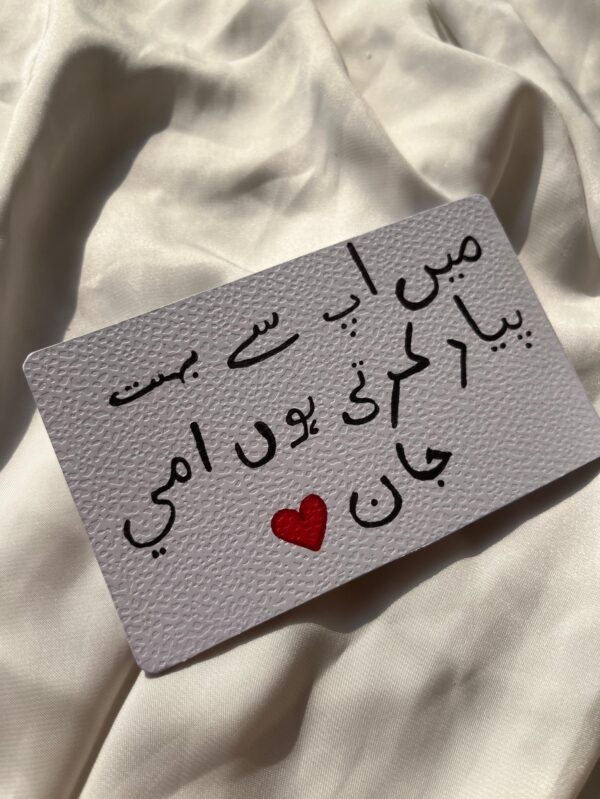 میں اپ سے بہت
پیار کرتی ہوں امي
جان ❤️